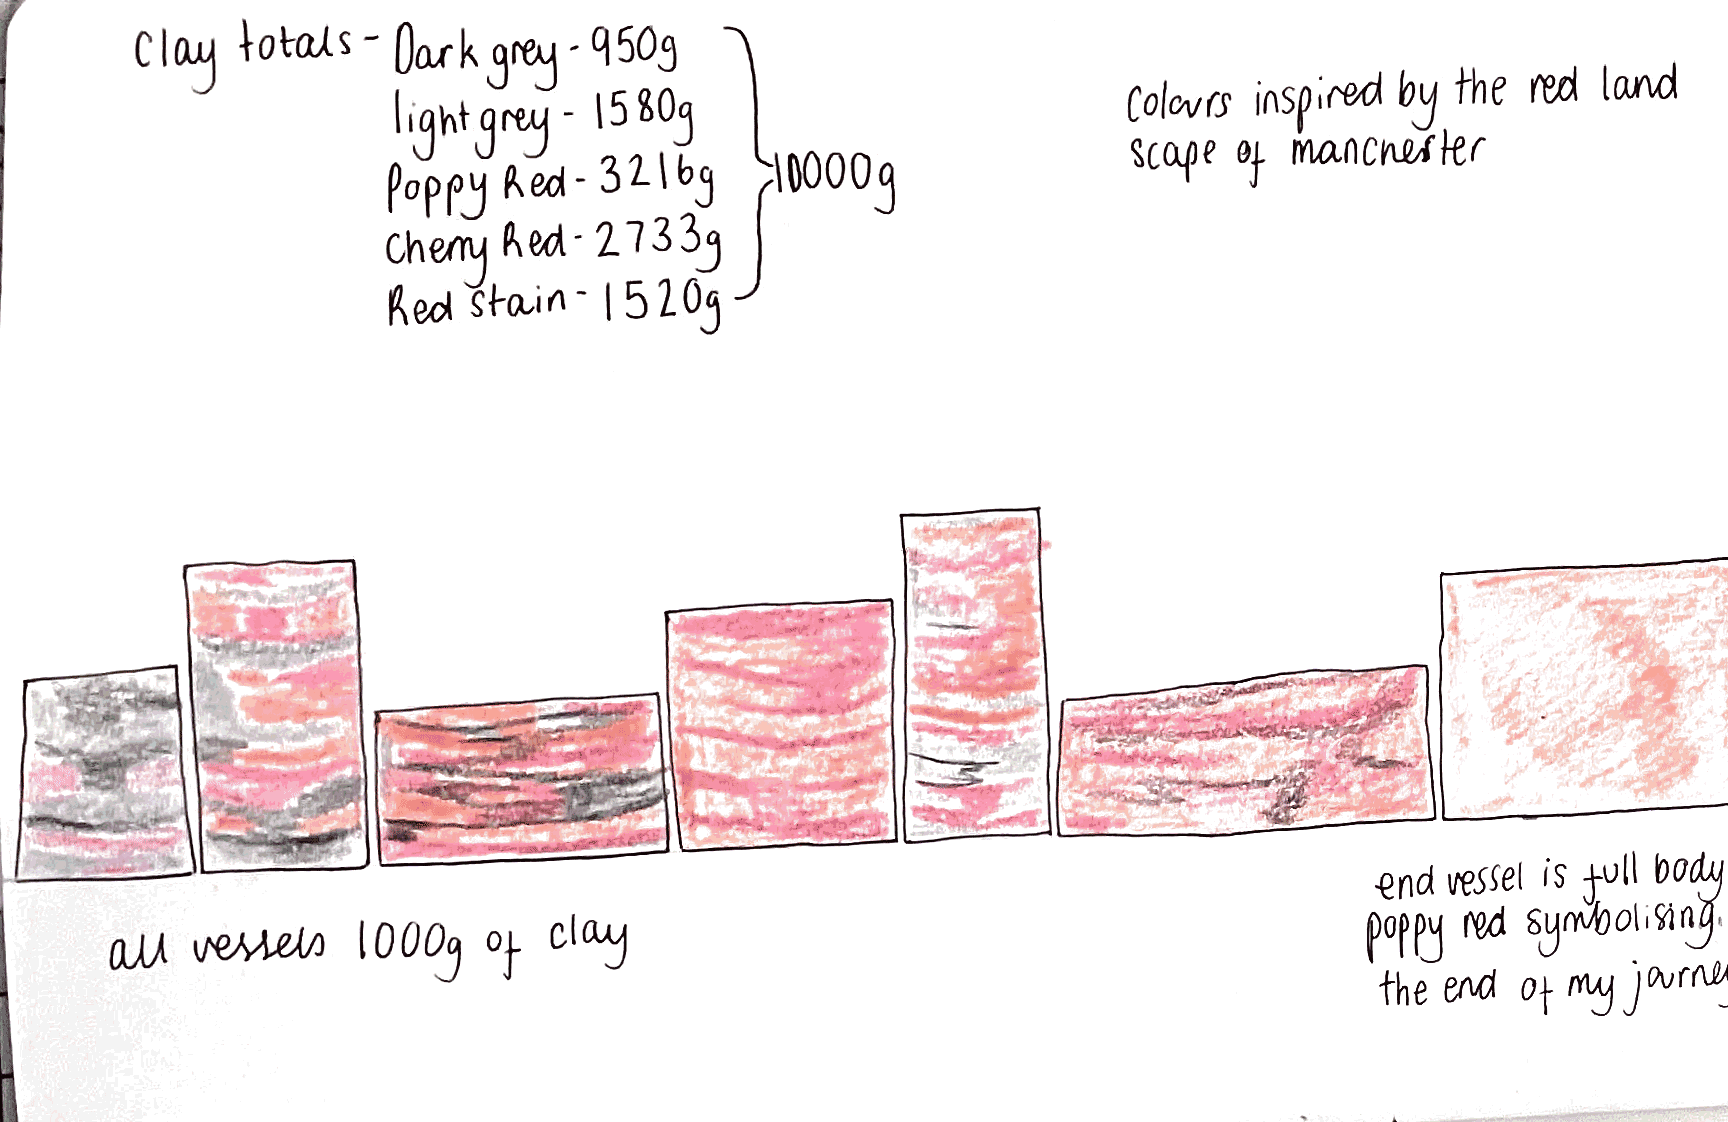 Clay totals - Dark grey - 950g
light grey - 1580g
Poppy Red - 3216g
Cherry Red - 2733g
Red Stain - 1520g
10000g
Colours inspired by the red land
scape of manchester
all vessels 1000g of clay
end vessel is full body
poppy red symbolising
the end of my journey